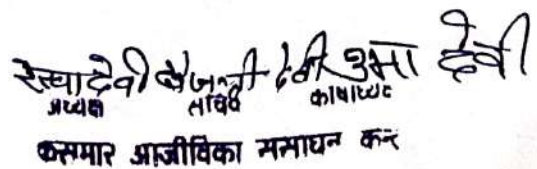 रेखा देवी बैजन्ती देवी उमा देवी
अध्यक्ष सचिव कोषाध्यक्ष
कसमार आजीविका संसाधन केन्द्र